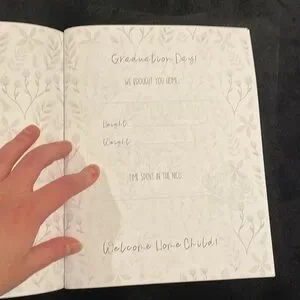 Graduation Day!
WE BROUGHT YOU HOME:
Length
Weight
TIME SPENT IN THE NICU
Welcome Home Child!